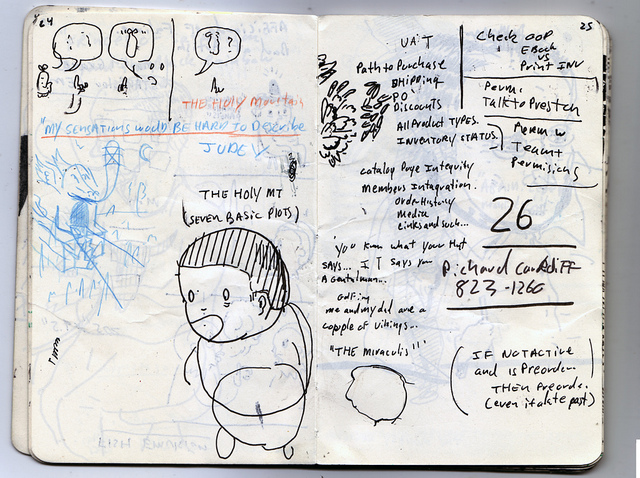 24
? ?
THE HOLY MOUNTAIN
"MY SENSATIONS WOULD BE HARD TO DESCRIBE
JUDE
THE HOLY MT
(SEVEN BASIC PLOTS)
25
UAT
Path to Purchase
SHIPPING
PO
Discounts
All Product TYPES.
INVENTORY STATUS.
catalog Page Integrity
Members Integration.
order History
Media
Links and such...
"you know what your Hat
SAYS... IT SAYS your
A Gentalman...
me and my dad are a
copple of vikings...
"THE MIRACULIS"
Check OOP
EBook
vs
Print INV
Perm.
Talk to Preston
Perm w
Team +
Permisions
26
Richard Cardiff
823-1260
(IF NOT ACTIVE
and is Preorder.
THEN Preorder.
(even if date past)